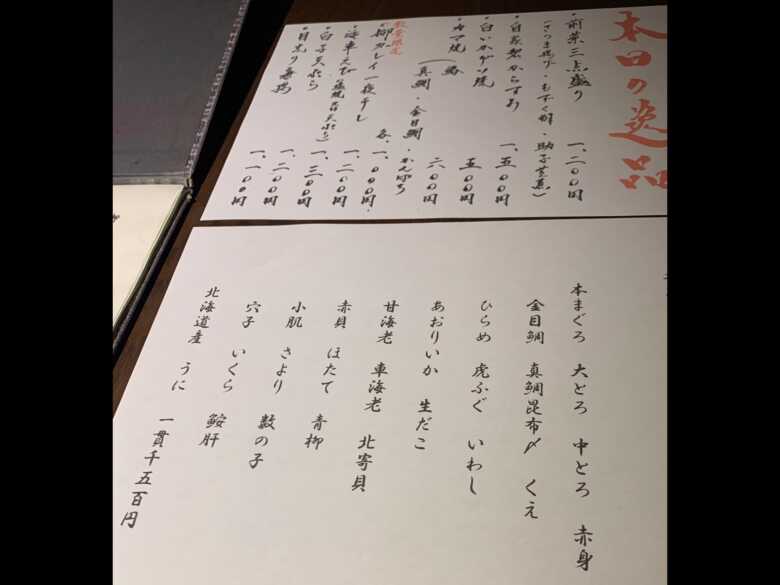 本日の逸品
・前菜三点盛り 一、二〇〇円
・自家製からすみ 一、五〇〇円
・白いかげそ焼 五〇〇円
・カマ焼 六〇〇円
(真鯛・金目鯛・かんぱち
数量限定
・柳カレイ一夜干し 各、一、〇〇〇円
・海車えび(塩焼 or 天ぷら) 一、二〇〇円
・白子天ぷら 一、三〇〇円
一、二〇〇円
一、一〇〇円
本まぐろ 大とろ 中とろ 赤身
金目鯛 真鯛昆布〆 くえ
ひらめ 虎ふぐ いわし
あおりいか 生だこ
甘海老 車海老 北寄貝
赤貝 ほたて 青柳
小肌 さより 数の子
穴子 いくら 鮟肝
北海道産 うに 一貫千五百円